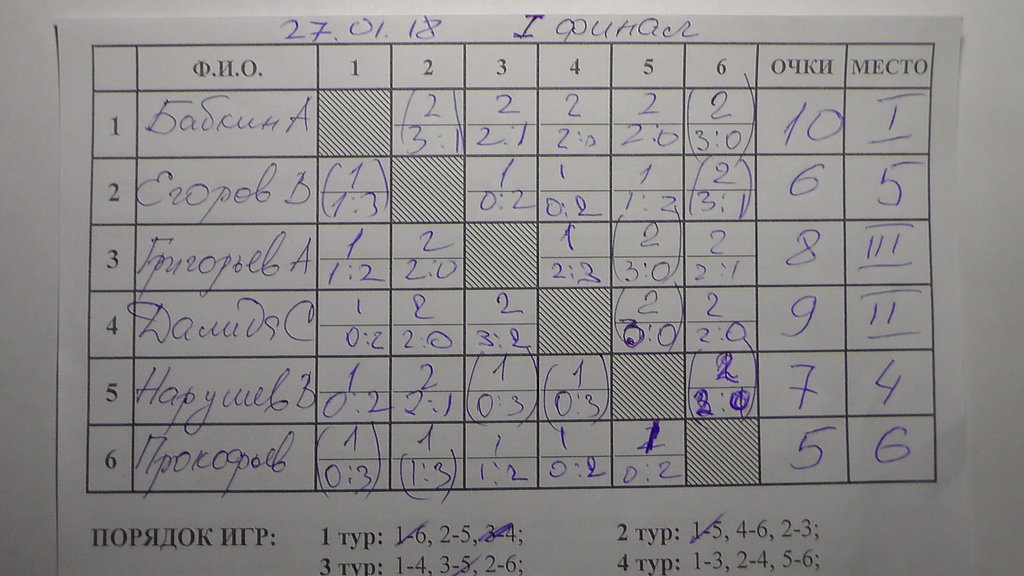 27.01.18 I финал
Ф.И.О. 1 2 3 4 5 6 ОЧКИ МЕСТО
1 Бабкин А (2 2 2 2 (2 10 I
3:1) 2:1 2:0 2:0 3:0)
2 Егоров В (1 1 1 1 (2 6 5
1:3) 0:2 0:2 1:2 3:1)
3 Григорьев А 1 2 1 (2 2 8 III
1:2 2:0 2:3 3:0) 2:1
4 Далидя С 1 2 2 (2 2 9 II
0:2 2:0 3:2 3:0) 2:0
5 Нарушев В 1 2 (1 (1 2 7 4
0:2 2:1 0:3) 0:3) 2:0
6 Прокофьев (1 1 1 1 1 5 6
0:3) (1:3) 1:2 0:2 0:2
ПОРЯДОК ИГР: 1 тур: 1-6, 2-5, 3-4; 2 тур: 1-5, 4-6, 2-3;
3 тур: 1-4, 3-5, 2-6; 4 тур: 1-3, 2-4, 5-6;